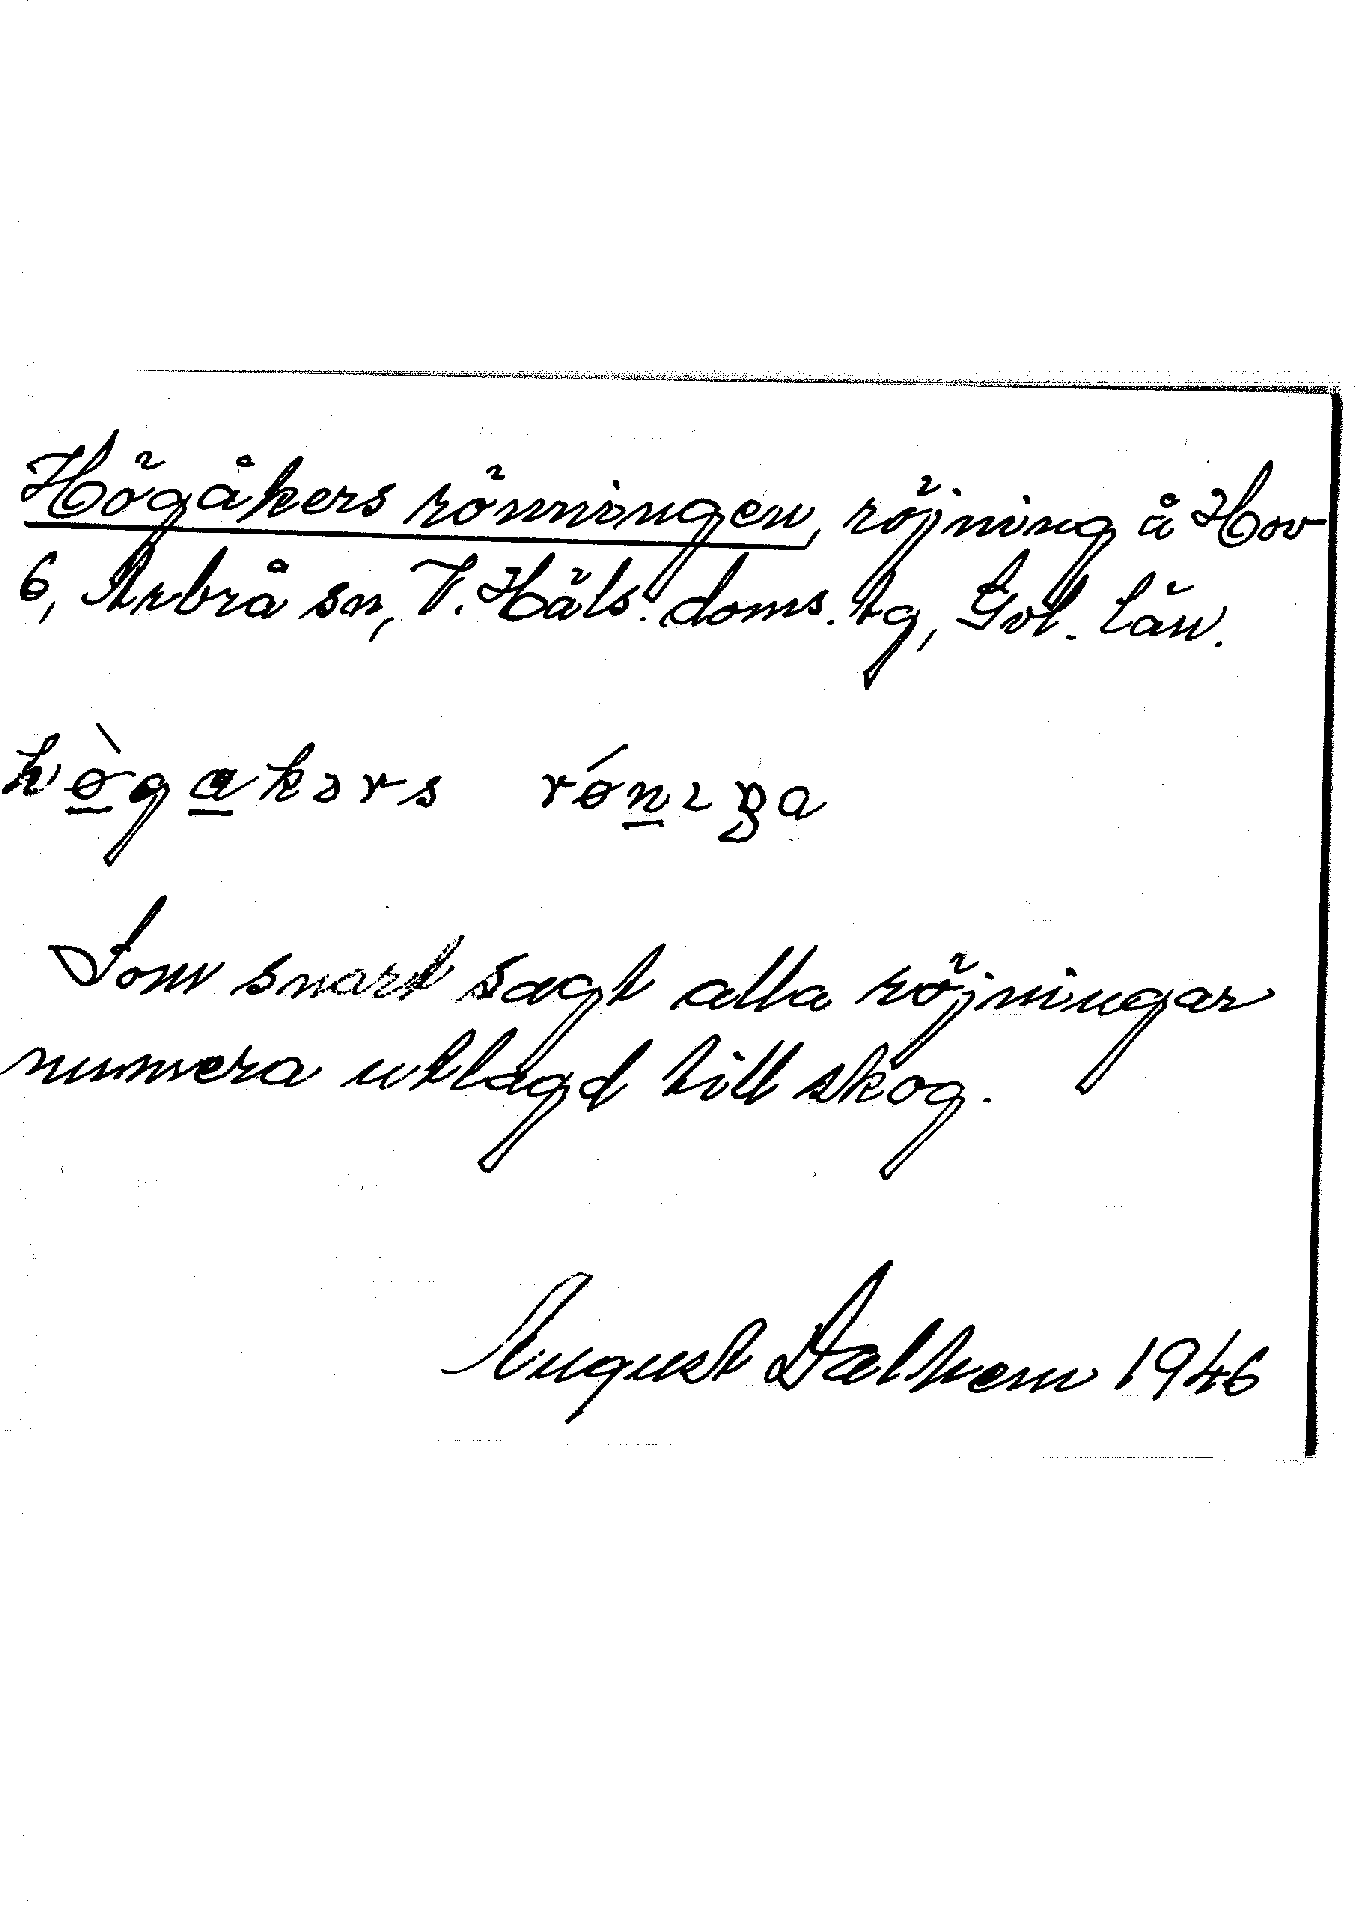 Högåkers rönningen, röjning å Hov
6, Arbrå sn, V. Häls. doms. tg, Gvl. län.
hø̲̀ga̲kərs røńıŋa
Som snart sagt alla röjningar
numera utlagd till skog.
August Dalhem 1946